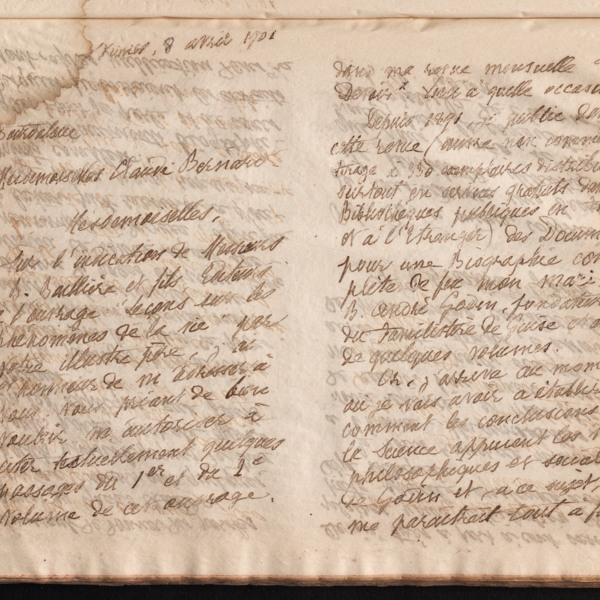 8 avril 1901
Mesdemoiselles Claude Bernard
Mesdemoiselles,
Sur l'indication de Messieurs
B. Baillière et fils, Editeurs
de l'ouvrage Leçons sur les
phénomènes de la vie par
votre illustre père, j'ai
l'honneur de m'adresser à
vous, vous priant de bien
vouloir m'autoriser à
citer textuellement quelques
passages du 1er et du 2e
volume de cet ouvrage.
dans ma revue mensuelle "Le
Devoir". Voici à quelle occasi
Depuis 1891 je publie dan
cette revue (œuvre non commer
tirage à 350 exemplaires distribu
surtout en services gratuits dans
Bibliothèques publiques en
et à l'Etranger) des Docum
pour une Biographie com
plète de feu mon mari J.
B. André Godin fondateu
du familistère de Guise et a
de quelques volumes.
Or, j'arrive au mom
où je vais avoir à établir
comment les conclusions
la Science appuient les v
philosophiques et social
de Godin et à ce sujet
me paraîtrait tout à f